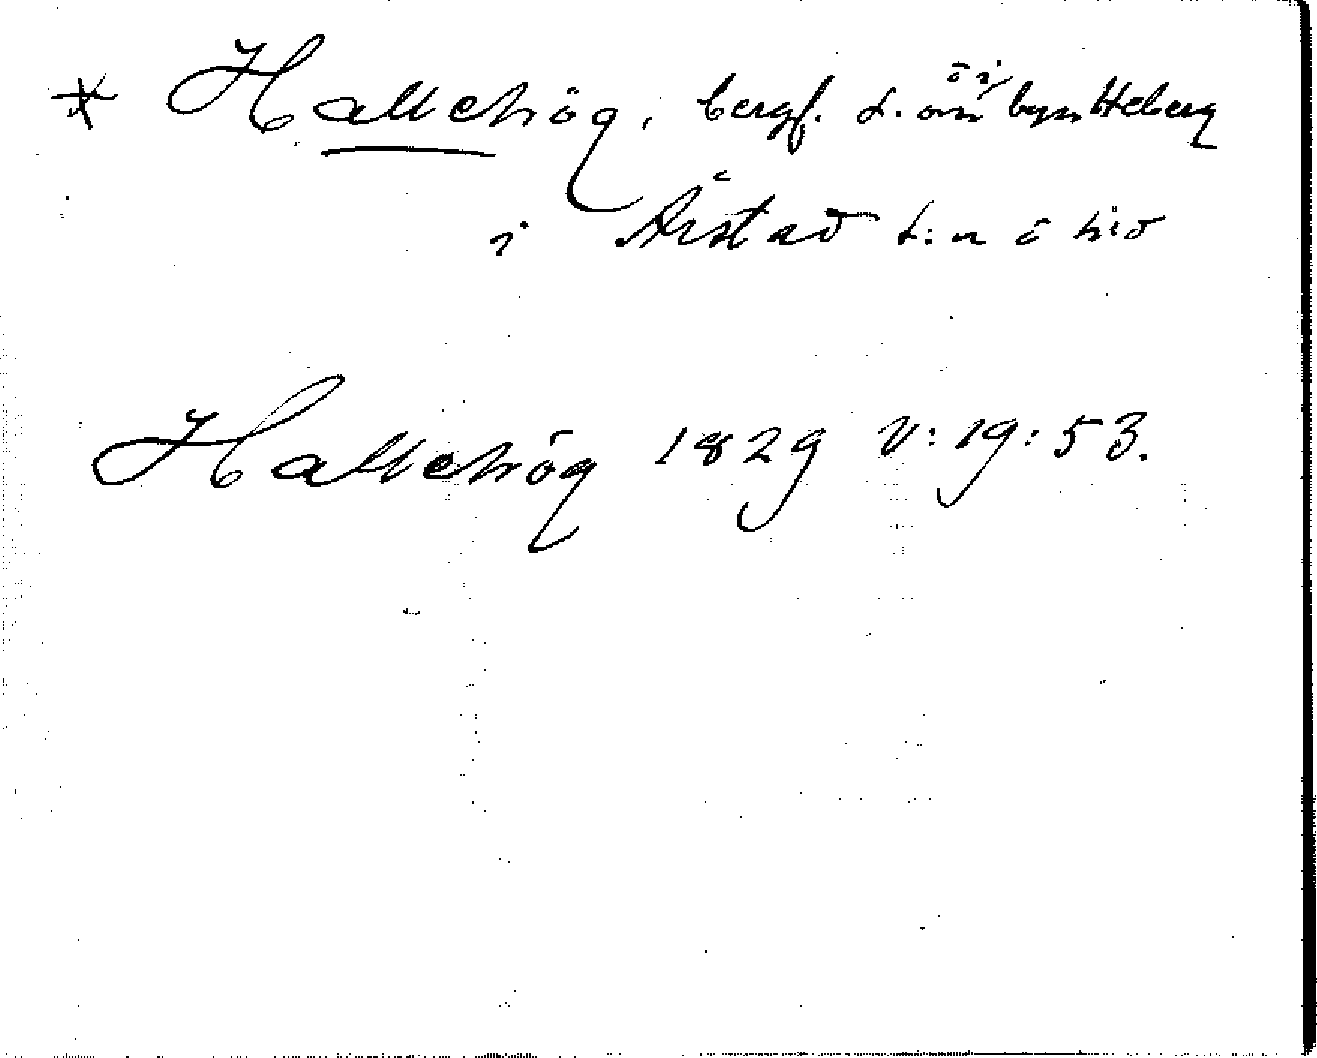 * Hallehög, bergf. s. om byn Heberg
i Årstad s:n o hd
Hallehög 1829 V:19:53.